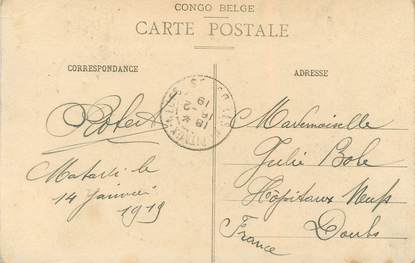 CONGO BELGE
CARTE POSTALE
CORRESPONDANCE
ADRESSE
Robert
Matadi le
14 Janvier
1919
Mademoiselle
Julie Bole
Hôpitaux Neufs
Doubs
France